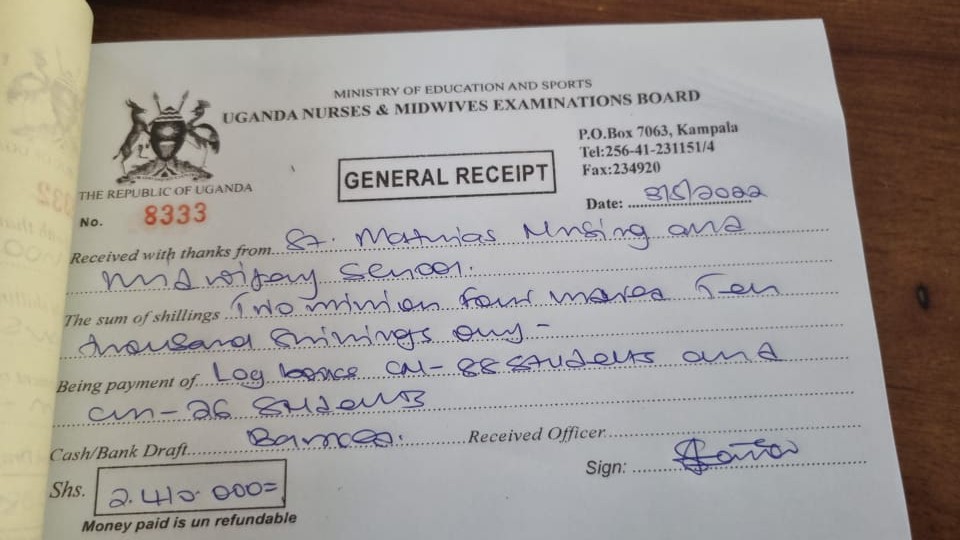 MINISTRY OF EDUCATION AND SPORTS
UGANDA NURSES & MIDWIVES EXAMINATIONS BOARD
P.O.Box 7063, Kampala
Tel:256-41-231151/4
Fax:234920
GENERAL RECEIPT
THE REPUBLIC OF UGANDA
No. 8333
Date: 3/5/2022
Received with thanks from St. Mathias Nursing and
Midwifery School.
The sum of shillings Two million four hundred Ten
thousand shillings only -
Being payment of Log books CN - 88 students and
CM - 26 students
Cash/Bank Draft Received Officer
Sign:
Shs. 2.410.000=
Money paid is un refundable